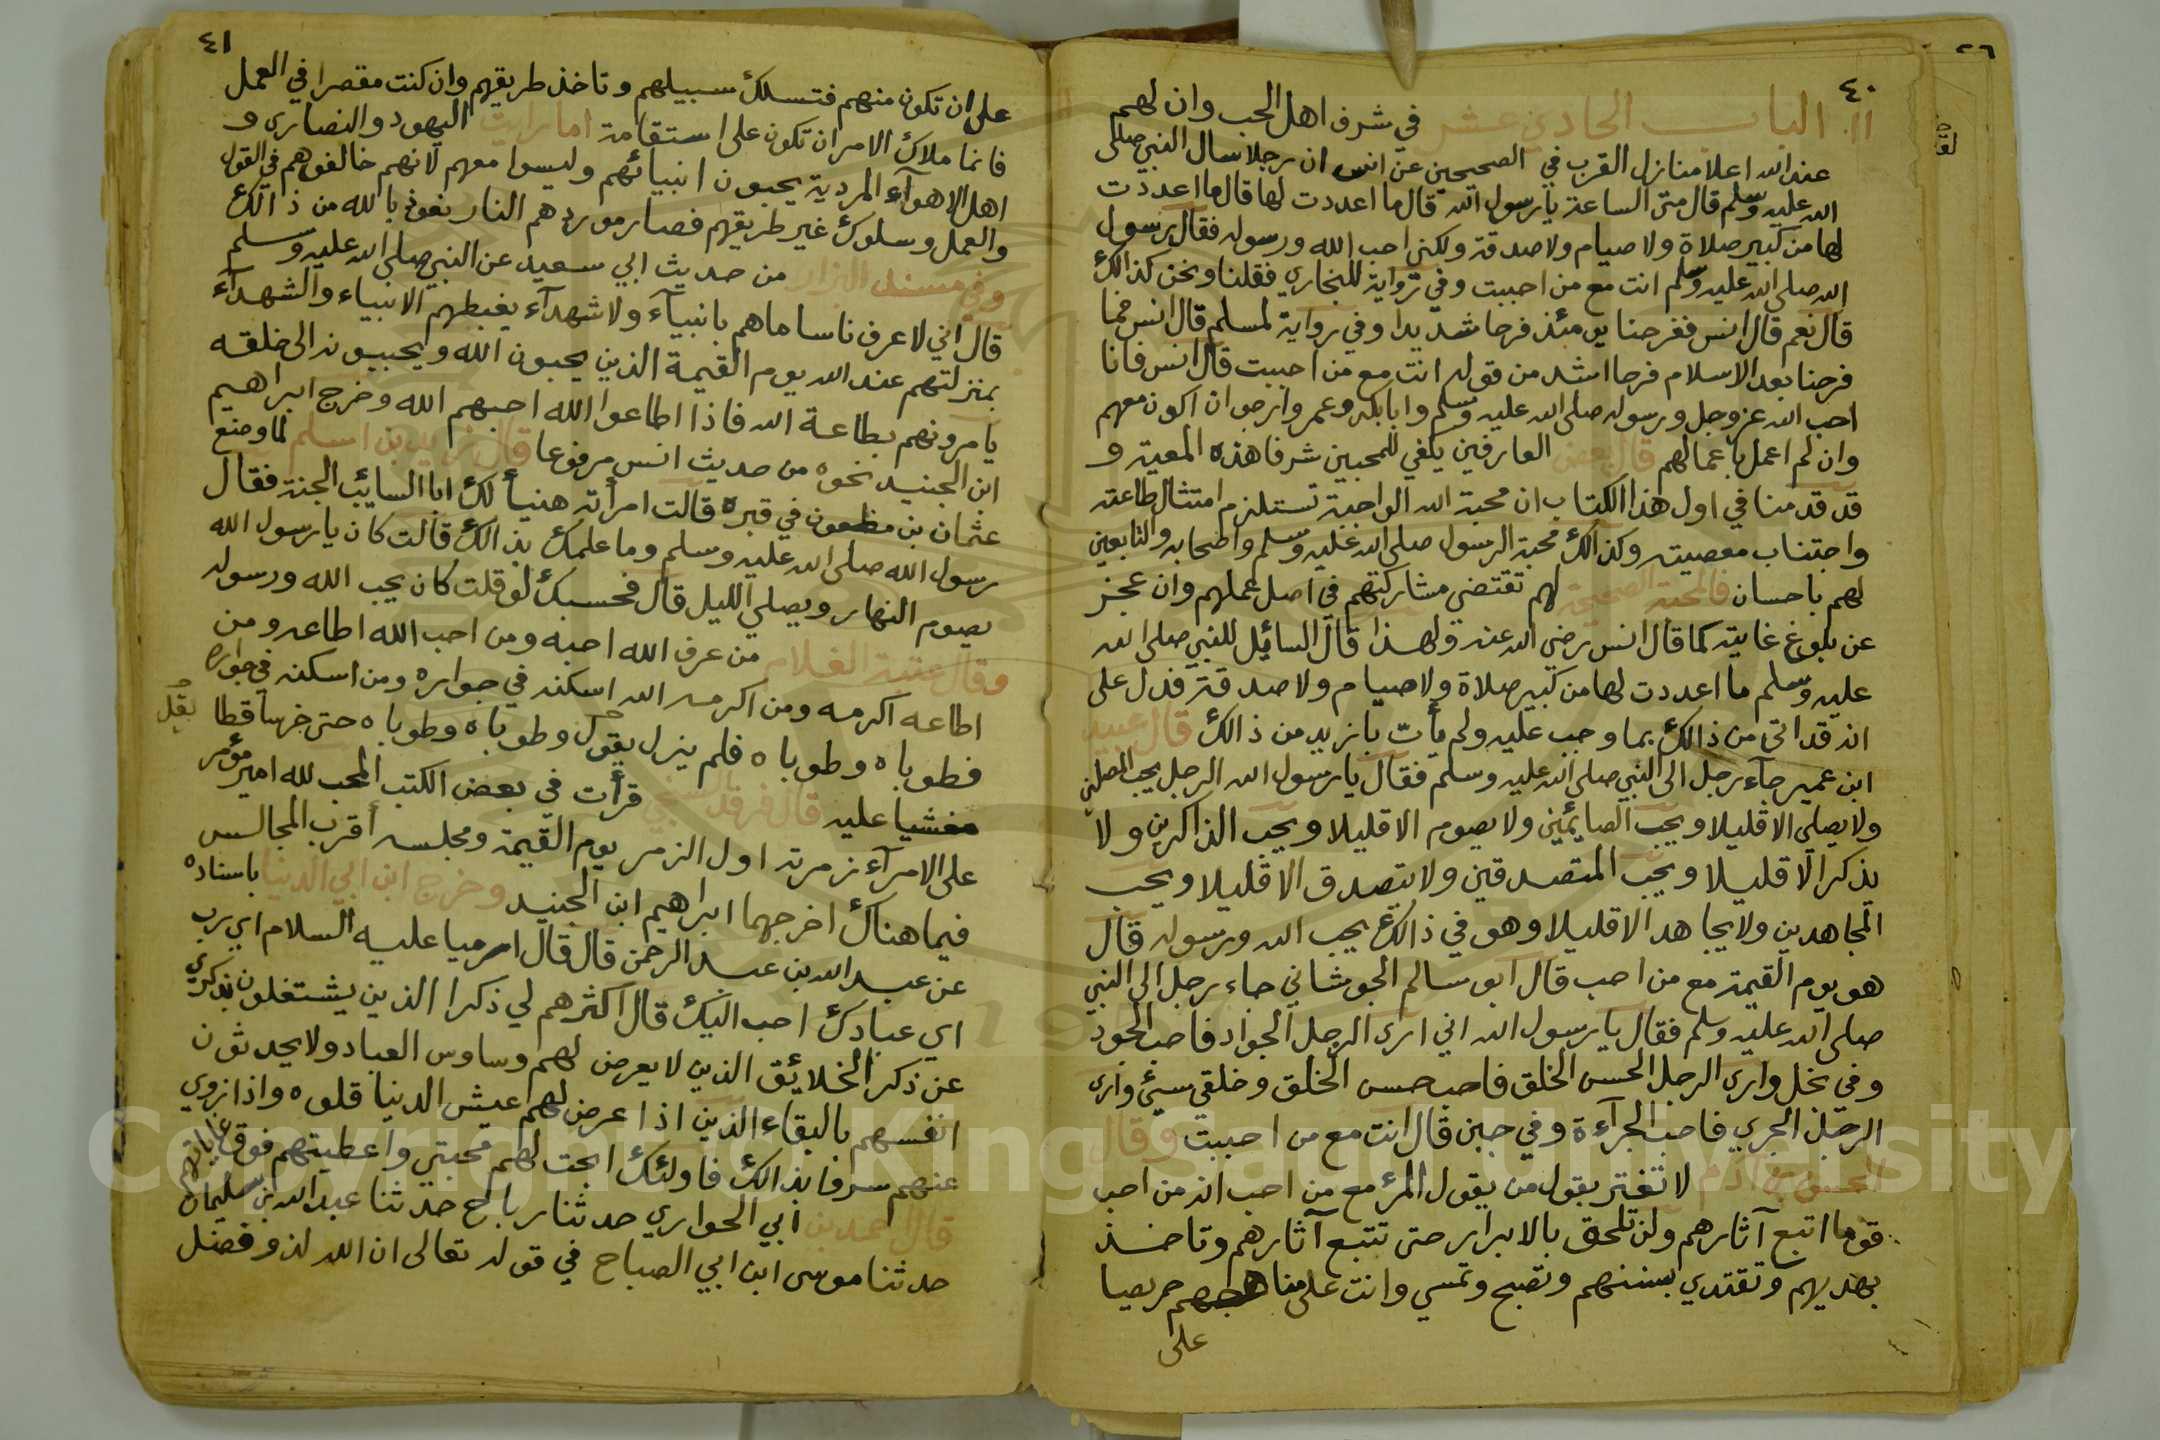 ٤٠
الباب الحادي عشر في شرف اهل الحب وان لهم
عند الله اعلا منازل القرب في الصحيحين عن انس ان رجلا سال النبي صلى
الله عليه وسلم قال متى الساعة يا رسول الله قال ما اعددت لها قال ما اعددت
لها من كبير صلاة ولا صيام ولا صدقة ولكني احب الله ورسوله فقال رسول
الله صلى الله عليه وسلم انت مع من احببت وفي رواية للبخاري فقلنا ونحن كذالك
قال نعم قال انس ففرحنا يومئذ فرحا شديدا وفي رواية لمسلم قال انس فما
فرحنا بعد الاسلام فرحا اشد من قوله انت مع من احببت قال انس فانا
احب الله عز وجل ورسوله صلى الله عليه وسلم وابا بكر وعمر وارجوا ان اكون معهم
وان لم اعمل باعمالهم قال بعض العارفين يكفي للمحبين شرفا هذه المعية و
قد قدمنا في اول هذا الكتاب ان محبة الله الواجبة تستلزم امتثال طاعته
واجتناب معصيته وكذالك محبة الرسول صلى الله عليه وسلم واصحابه والتابعين
لهم باحسان فالمحبة الصحيحة لهم تقتضي مشاركتهم في اصل عملهم وان عجز
عن بلوغ غايته كما قال انس رضي الله عنه ولهذا قال السائل للنبي صلى الله
عليه وسلم ما اعددت لها من كبير صلاة ولا صيام ولا صدقة فدل على
انه قد اتى من ذالك بما وجب عليه ولم يأت بازيد من ذالك قال عبيد
ابن عمير جآء رجل الى النبي صلى الله عليه وسلم فقال يا رسول الله الرجل يحب المصلين
ولا يصلي الا قليلا ويحب الصايمين ولا يصوم الا قليلا ويحب الذاكرين ولا
يذكر الا قليلا ويحب المتصدقين ولا يتصدق الا قليلا ويحب
المجاهدين ولا يجاهد الا قليلا وهو في ذالك يحب الله ورسوله قال
هو يوم القيمة مع من احب قال ابو سالم الجوشاني جاء رجل الى النبي
صلى الله عليه وسلم فقال يا رسول الله اني ارى الرجل الجواد فاحب الجود
وفي بخل وارى الرجل الحسن الخلق فاحب حسن الخلق وخلقي سيئ وارى
الرجل الجري فاحب الجرآءة وفي جبن قال انت مع من احببت وقال
الحسن بن ادم لا تغتر بقول من يقول المرء مع من احب انه من احب
قوما اتبع آثارهم ولن تلحق بالابرار حتى تتبع آثارهم وتاخذ
بهديهم وتقتدي بسننهم وتصبح وتمسي وانت على مناهجهم حريصا
على
٤١
على ان تكون منهم فتسلك سبيلهم وتاخذ طريقهم وان كنت مقصرا في العمل
فانما ملاك الامر ان تكون على استقامة اما رايت اليهود والنصارى و
اهل الاهوآء المردية يحبون انبيائهم وليسوا معهم لانهم خالفوهم في القول
والعمل وسلوك غير طريقهم فصار موردهم النار نعوذ بالله من ذالك
وفي مسند البزار من حديث ابي سعيد عن النبي صلى الله عليه وسلم
قال اني لاعرف ناسا ماهم بانبيآء ولا شهدآء يغبطهم الانبياء والشهدآء
بمنزلتهم عند الله يوم القيمة الذين يحبون الله ويحببونه الى خلقه
يامرونهم بطاعة الله فاذا اطاعوا الله احبهم الله وخرج ابراهيم
ابن الجنيد نحوه من حديث انس مرفوعا قال زيد بن اسلم لما وضع
عثمان بن مظعون في قبره قالت امرأته هنيأ لك ابا السائب الجنة فقال
رسول الله صلى الله عليه وسلم وما علمك بذالك قالت كان يا رسول الله
يصوم النهار ويصلي الليل قال فحسبك لو قلت كان يحب الله ورسوله
وقال عتبة الغلام من عرف الله احبه ومن احب الله اطاعه ومن
اطاعه اكرمه ومن اكرمه الله اسكنه في جواره ومن اسكنه في جواره
فطوباه وطوباه فلم يزل يقول وطوباه وطوباه حتى خر ساقطا
مغشيا عليه قال فرقد السبخي قرأت في بعض الكتب المحب لله امير مؤمر
على الامرآء زمرته اول الزمر يوم القيمة ومجلسه اقرب المجالس
فيما هناك اخرجهما ابراهيم ابن الجنيد وخرج ابن ابي الدنيا باسناده
عن عبد الله بن عبد الرحمن قال قال ارميا عليه السلام اي رب
اي عبادك احب اليك قال اكثرهم لي ذكرا الذين يشتغلون بذكري
عن ذكر الخلايق الذين لا يعرض لهم وساوس العباد ولا يحدثون
انفسهم بالبقاء الذين اذا عرض لهم عيش الدنيا قلوه واذا زوي
عنهم سروا بذالك فاولئك ابحت لهم محبتي واعطيتهم فوق غاياتهم
قال احمد بن ابي الحواري حدثنا رباح حدثنا عبد الله بن سليمان
حدثنا موسى ابن ابي الصباح في قوله تعالى ان الله لذو فضل
Copyright © King Saud University